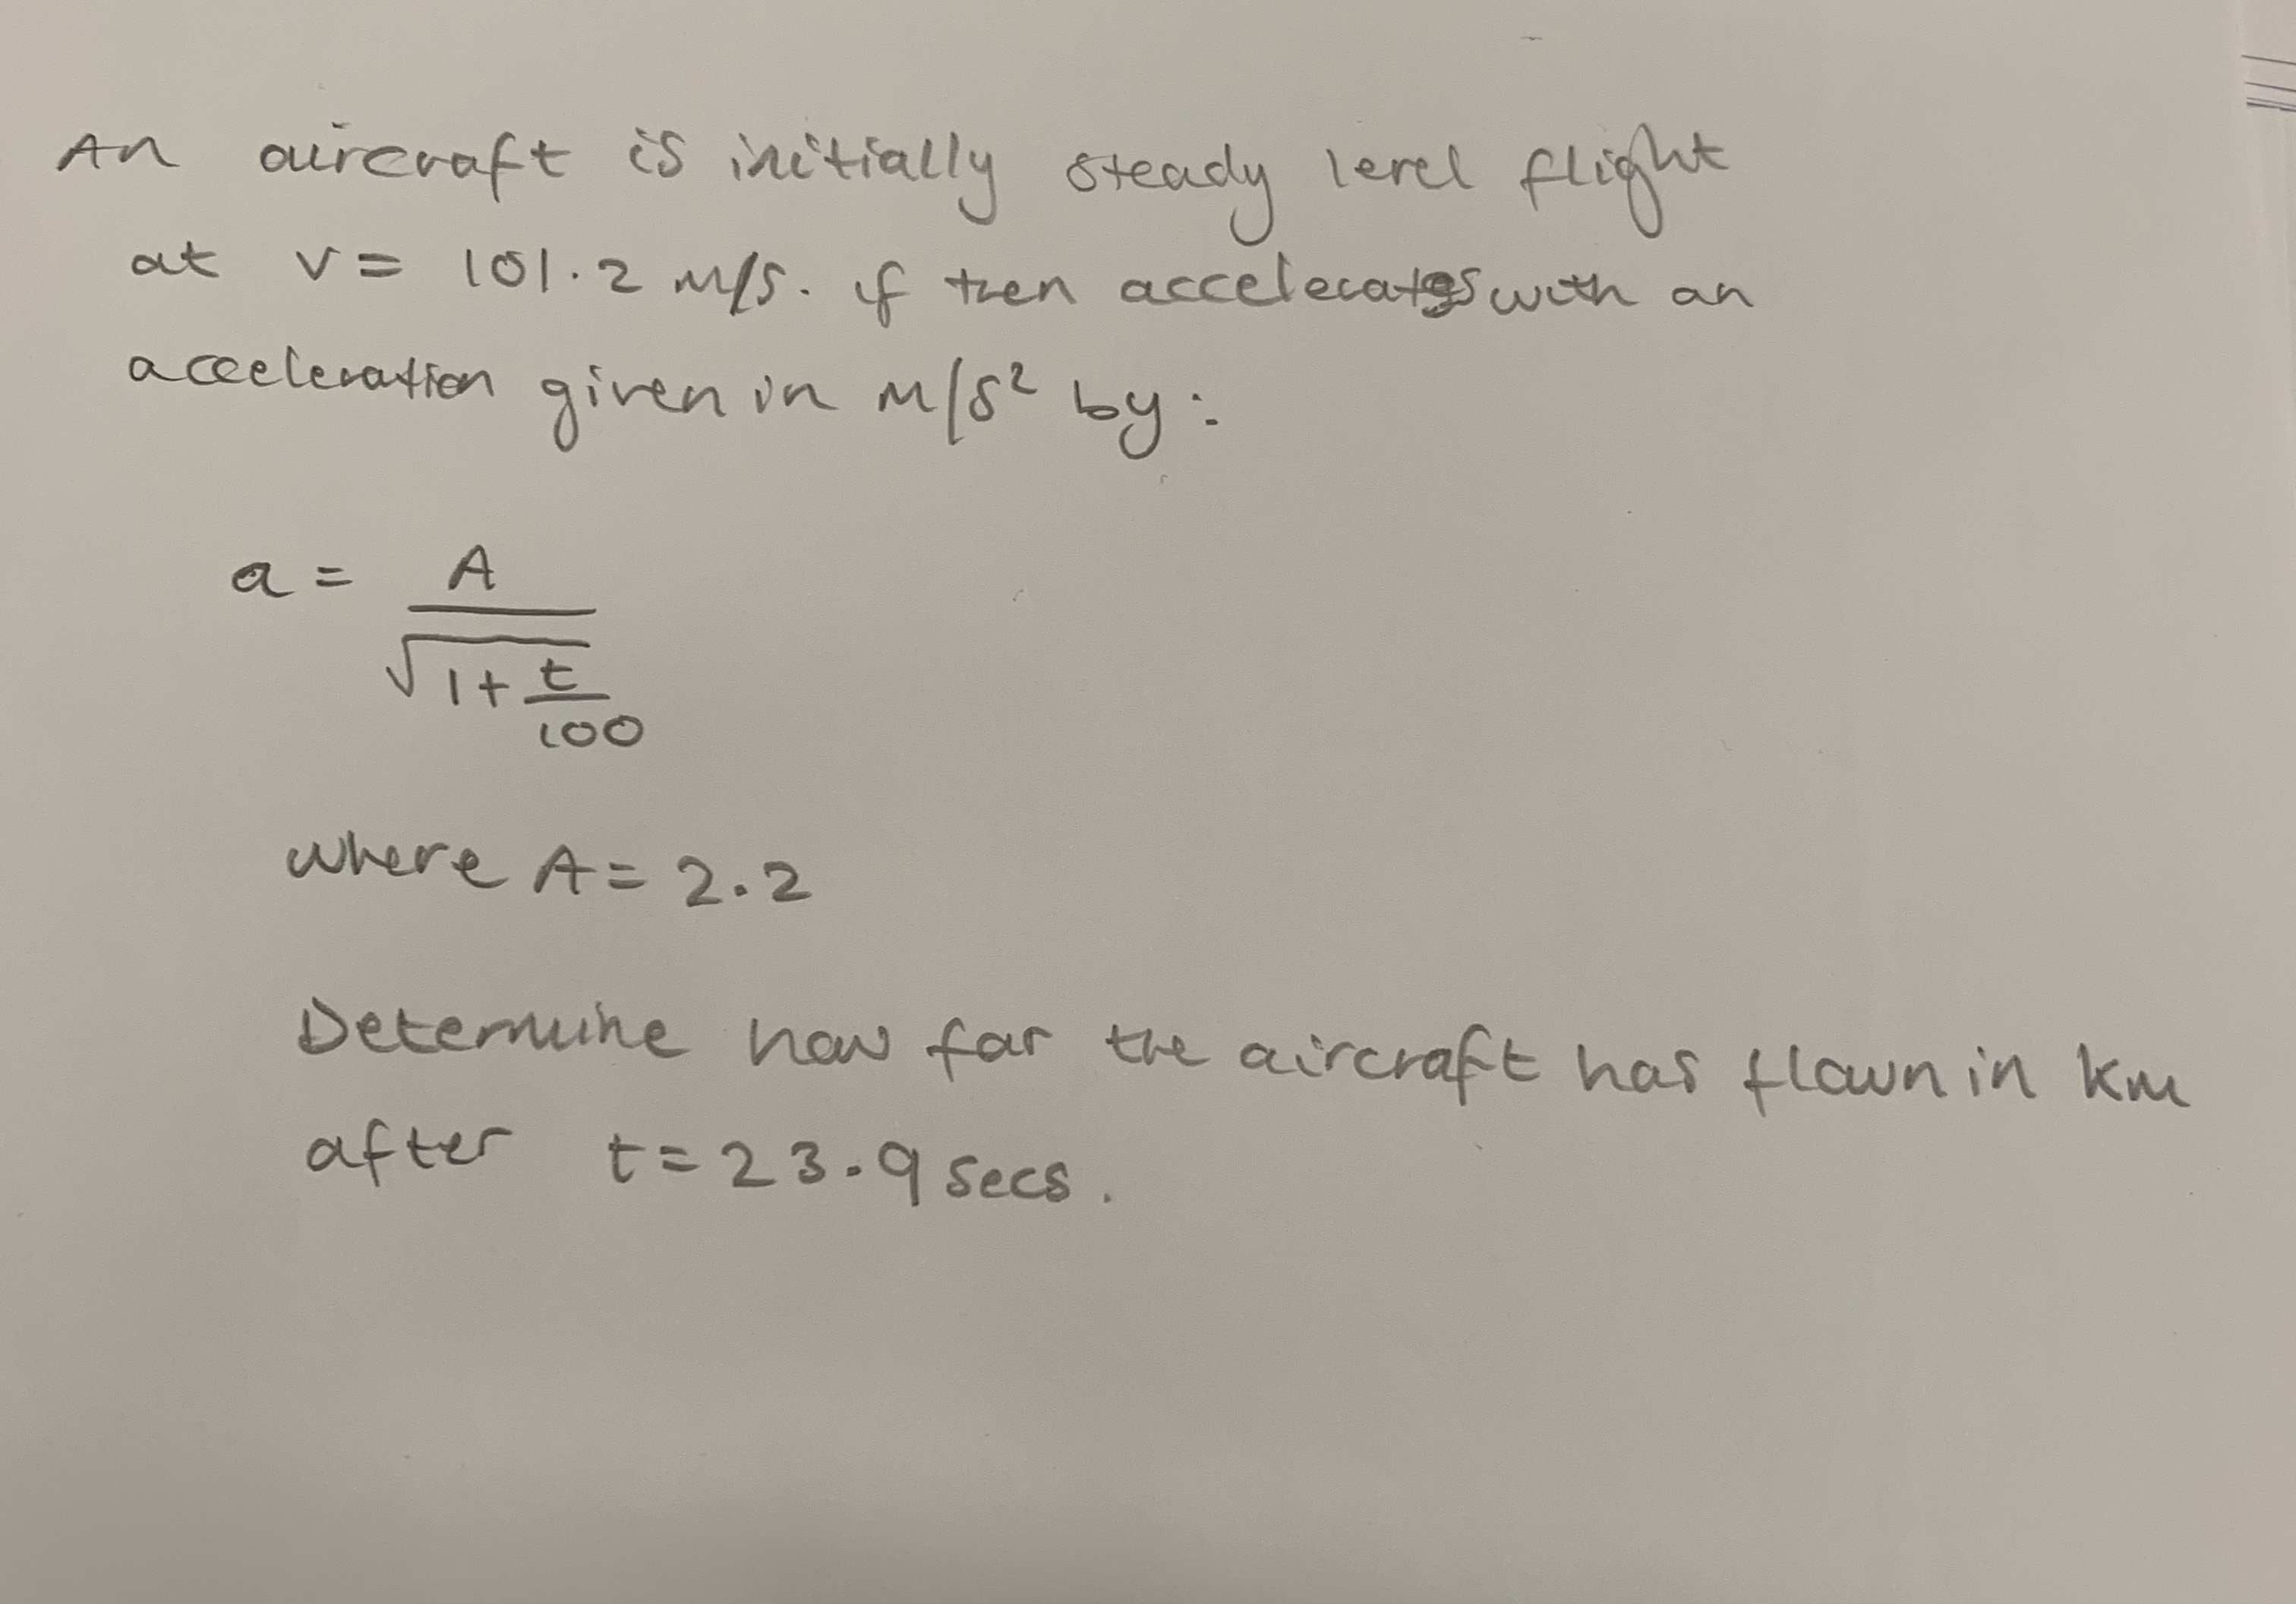 An aircraft is initially steady level flight
at v = 101.2 m/s. if then accelerates with an
acceleration given in m/s² by:
a = A / √(1 + t/100)
where A = 2.2
Determine how far the aircraft has flown in km
after t = 23.9 secs.